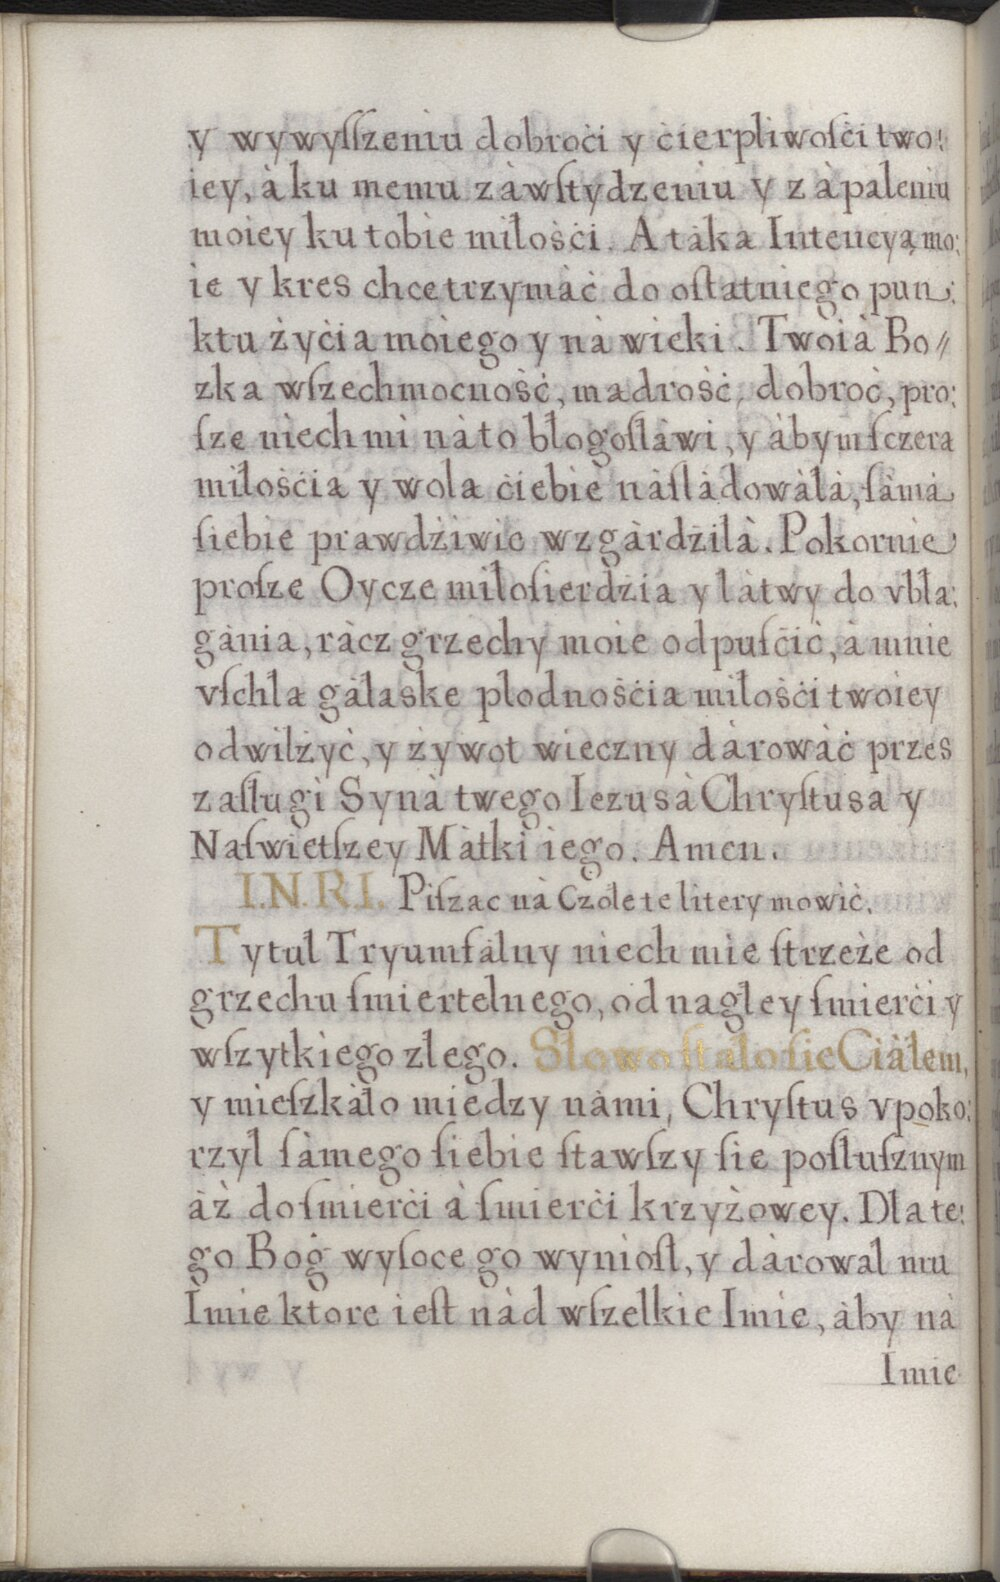 y wywyſſzeniu dobroći y ćierpliwośći two:
iey, à ku memu zàwſtydzeniu y zàpaleniu
moiey ku tobie miłośći. A taka Intencyą mo:
ie y kres chce trzymàć do oſtatniego pun:
ktu żyćia moiego y nà wieki. Twoià Bo//
zka wſzechmocność, madrość, dobroć, pro:
ſze niech mi nà to błogoſławi, y àbym ſczera
miłośćia y wola ćiebie nàſlàdowàłà, ſàmà
ſiebie prawdźiwie wzgàrdźiłà. Pokornie
proſze Oycze miłoſierdźia y łàtwy do vbła:
gània, ràcz grzechy moie odpuſćić, à mnie
vſchła gałaske płodnośćia miłośći twoiey
odwilżyć, y żywot wieczny dàrowàć przes
zaſługi Synà twego Iezusà Chryſtusa y
Naſwietſzey Màtki iego. Amen.
I.N.R.I. Piſzac nà Czole te litery mowić.
Tytuł Tryumfàlny niech mie ſtrzeże od
grzechu ſmiertelnego, od nagłey ſmierći y
wſzytkiego złego. Słowo ſtało ſie Ciàłem,
y mieſzkàło miedzy nàmi, Chryſtus vpoko:
rzył ſàmego ſiebie ſtawſzy ſie poſłuſznym
àż do ſmierći à ſmierći krzyżowey. Dla te:
go Bog wyſoce go wynioſł, y dàrował mu
Imie ktore ieſt nàd wſzelkie Imie, àby nà
Imie